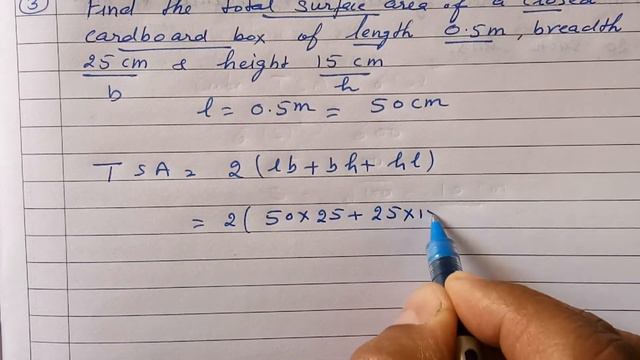 ③ Find the total surface area of a closed
cardboard box of length 0.5m, breadth
25 cm & height 15 cm
b h
l = 0.5m = 50cm
TSA = 2(lb+bh+hl)
= 2( 50×25+ 25×1